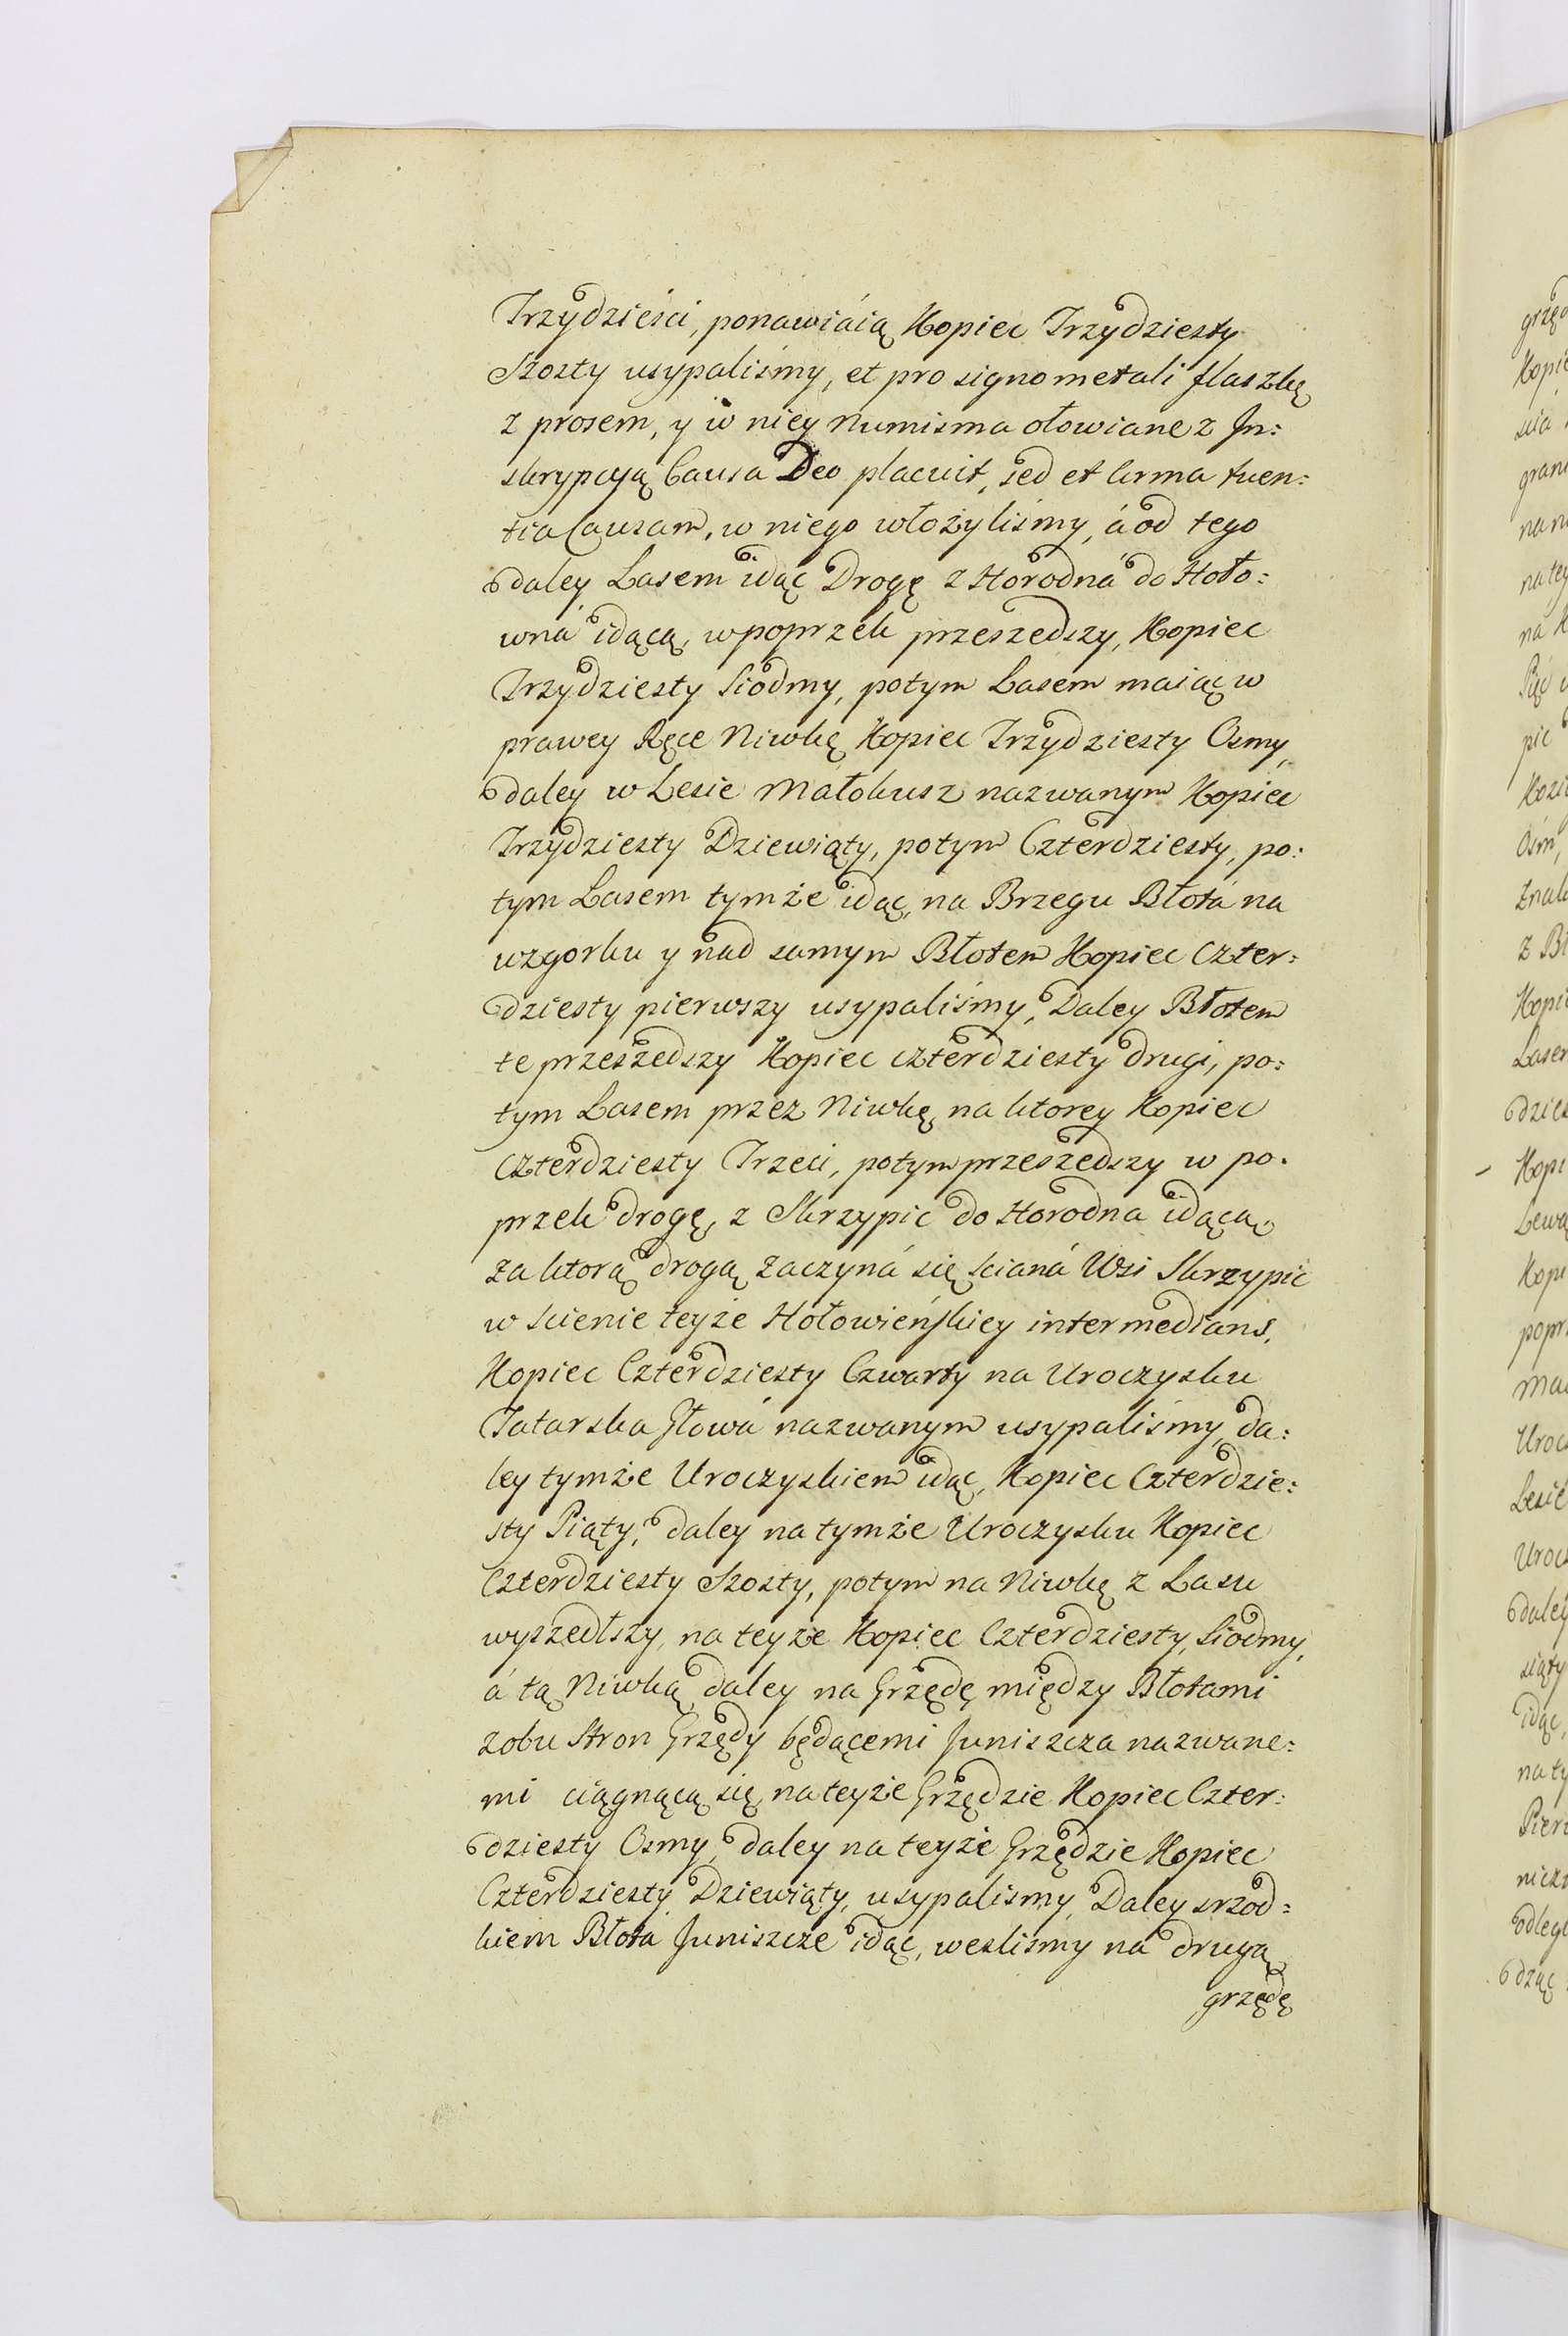 Trzydzieści, ponawiáią Kopiec Trzydziesty
Szosty usypaliśmy, et pro signo metali flaszkę
z prosem, y w niey numisma ołowiane z In:
skrypcyą Causa Deo placuit, sed et Arma tuen:
tia Causam, w niego włożyliśmy, á od tego
daley Lasem idąc Drogę z Horodná do Hoło:
wná idącą, wpoprzek przeszedszy, Kopiec
Trzydziesty Siodmy, potym Lasem maiąc w
prawey Ręce Niwkę Kopiec Trzydziesty Osmy,
daley w Lesie Małokusz nazwanym Kopiec
Trzydziesty Dziewiąty, potym Czterdziesty, po:
tym Lasem tymże idąc, na Brzegu Błotá na
wzgorku y nad samym Błotem Kopiec Czter:
dziesty pierwszy usypaliśmy, Daley Błotem
te przeszedszy Kopiec czterdziesty drugi, po:
tym Lasem przez Niwkę, na ktorey Kopiec
Czterdziesty Trzeci, potym przeszedszy w po:
przek drogę, z Skrzypic do Horodna idącą,
za ktorą drogą zaczyná się scianá Wsi Skrzypic
w scienie teyże Hołowieńskiey intermedians.
Kopiec Czterdziesty Czwarty na Uroczysku
Tatarska Głowá nazwanym usypaliśmy, da:
ley tymże Uroczyskiem idąc, Kopiec Czterdzie:
sty Piąty, daley na tymże Uroczysku Kopiec
Czterdziesty Szosty, potym na Niwkę z Lasu
wyszedłszy, na teyże Kopiec Czterdziesty Siodmy,
á tą Niwką daley na Grzędę między Błotami
z obu Stron Grzędy będącemi Juniszcza nazwane:
mi ciągnącą się, na teyże Grzędzie Kopiec Czter:
dziesty Osmy, daley na teyże Grzędzie Kopiec
Czterdziesty Dziewiąty, usypalismy, Daley srzod:
kiem Błotá Juniszcze idąc, weslismy na drugą
grzędę